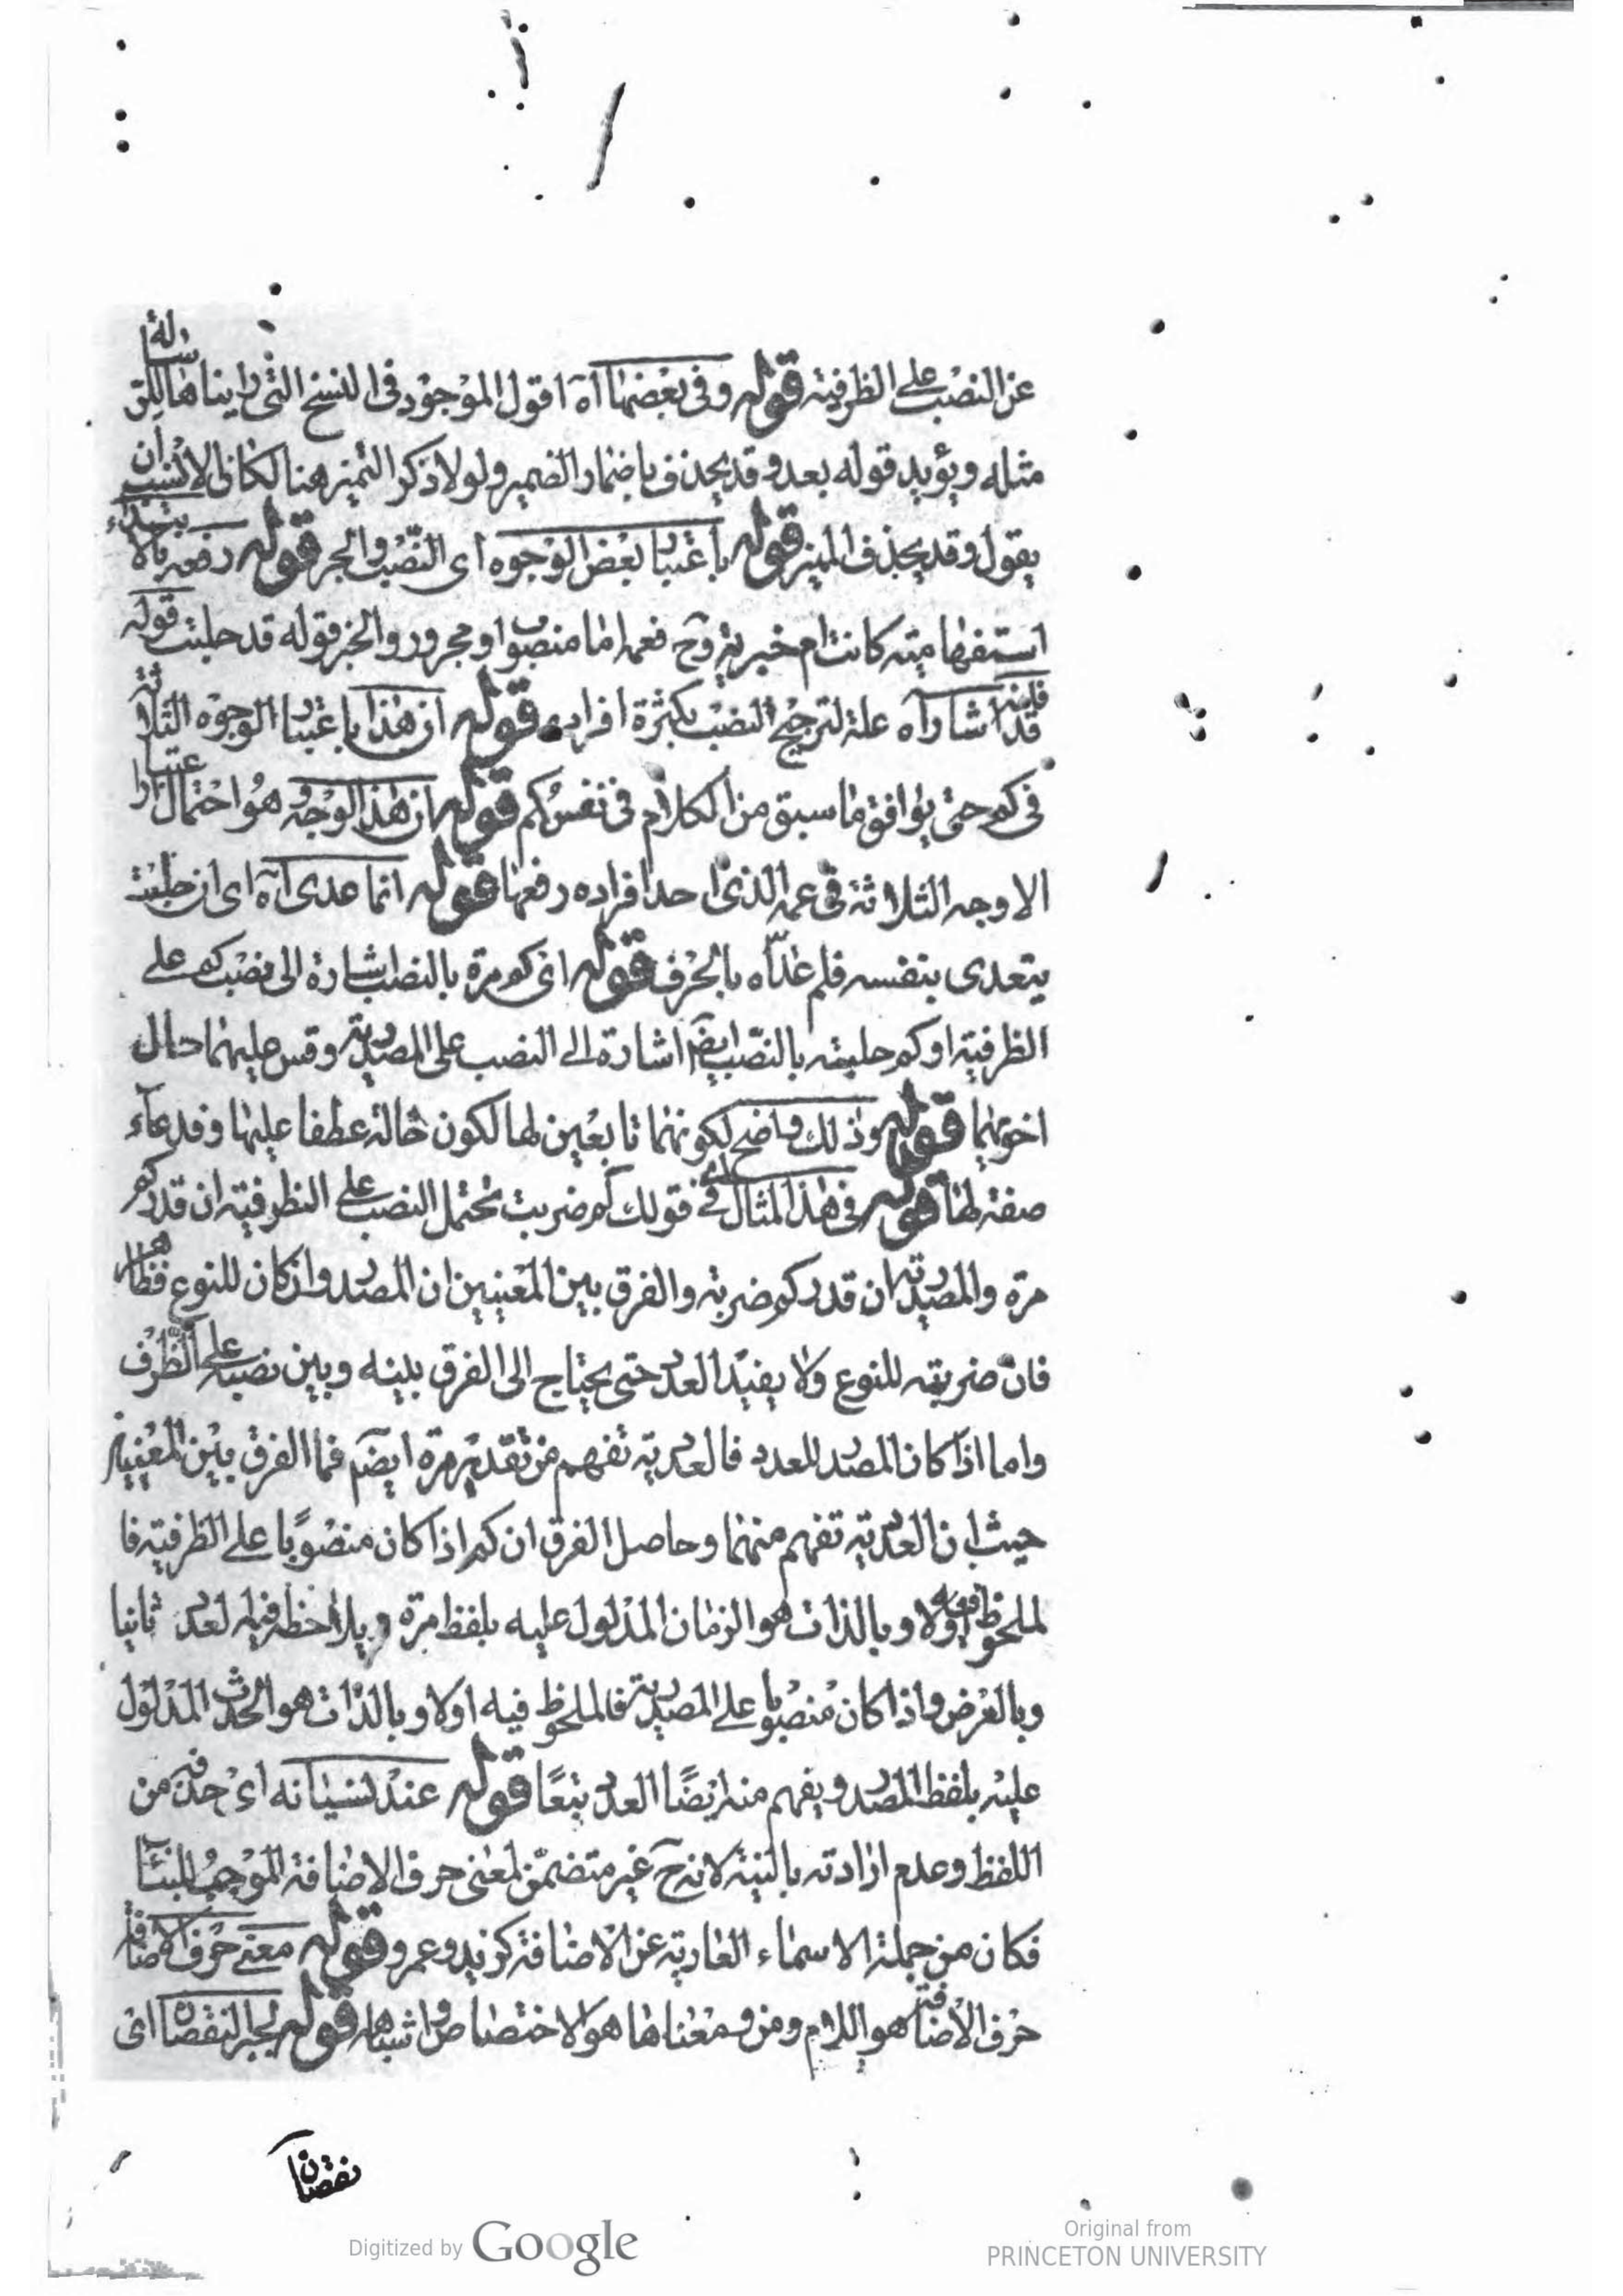 عن النصب على الظرفية قوله وفى بعضها آه اقول الموجود فى النسخ التى رايناها
مثله ويؤيد قوله بعد وقد يحذف باضمار الضمير ولولا ذكر التميز هنا لكان الانسب ان
يقول وقد يحذف المميز قوله باعتبار بعض الوجوه اى النصب والجر قوله رفعه بالابتداء
استفهامية كانت ام خبرية وح فعمة اما منصوب او مجرور والخبر قوله قد حلبت قوله
فانه قد اشار آه علة لترجيح النصب بكثرة افراده قوله ان هذا باعتبار الوجوه الثلاثة
فى كم حتى يوافق ما سبق من الكلام فى نفس كم قوله ان هذا الوجه وهو احتمال اعتبار
الاوجه الثلاثة فى عمة الذى احد افراده رفعها قوله انما عدى آه اى ان حلبت
يتعدى بنفسه فلم عداه بالحرف قوله اى كم مرة بالنصب اشارة الى نصب كم على
الظرفية او كم حلبته بالنصب ايضا اشارة الى النصب على المصدرية وقس عليهما حال
اخويهما قوله وذلك واضح لكونهما تابعين لها لكون خالة عطفا عليها وفدعاء
صفة لها قوله فى هذا المثال اى فى قولك كم ضربت يحتمل النصب على الظرفية ان قدر كم
مرة والمصدرية ان قدر كم ضربة والفرق بين المعنيين ان المصدر وان كان للنوع فظاهر
فان ضربته للنوع ولا يفيد العدد حتى يحتاج الى الفرق بينه وبين نصبه على الظرف
واما اذا كان المصدر للعدد فالعددية تفهم من تقدير مرة ايضا فما الفرق بين المعنيين
حيث ان العددية تفهم منهما وحاصل الفرق ان كم اذا كان منصوبا على الظرفية فا
لملحوظ فيه اولا وبالذات هو الزمان المدلول عليه بلفظ مرة ويلاحظ فيه العدد ثانيا
وبالعرض واذا كان منصوبا على المصدرية فالملحوظ فيه اولا وبالذات هو الحدث المدلول
عليه بلفظ المصدر ويفهم منه ايضا العدد تبعا قوله عند نسيانه اى حذفه من
اللفظ وعدم ارادته بالنية لانه ح غير متضمن لمعنى حرف الاضافة الموجب للبناء
فكان من جملة الاسماء العارية عن الاضافة كزيد وعمرو قوله معنى حرف الاضافة
حرف الاضافة هو اللام ومن ومعناها هو الاختصاص واشباهه قوله لجبر النقصان اى
نقصان
Digitized by Google
Original from
PRINCETON UNIVERSITY